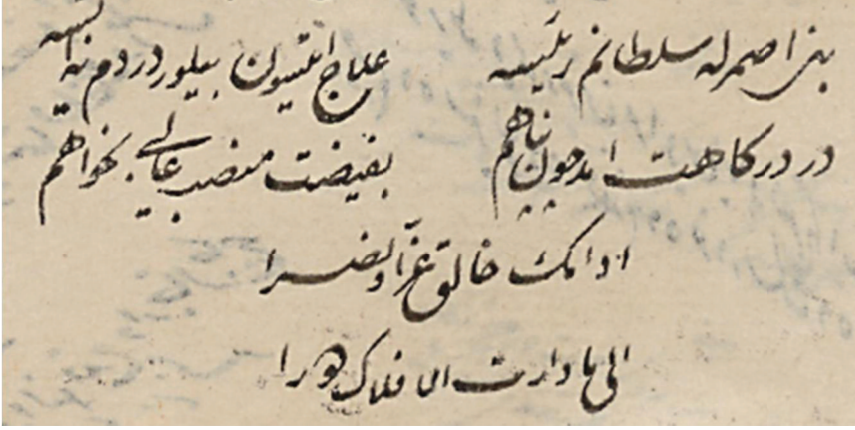 بنی اصمرله سلطانم رئیسه علاج ایتسون بیلور دردم نه ایسه
در درکاهت امد چون پناهم بفیضت منصب عالی بخواهم
ادامك خالق عزا ونصرا
الی مادارت الافلاك دورا